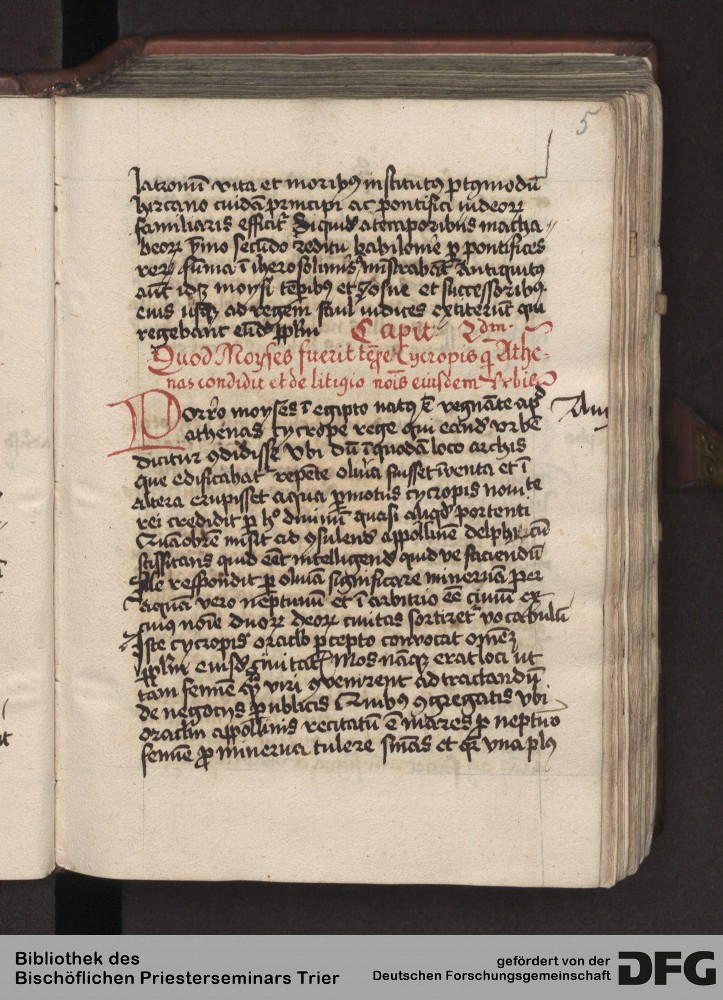 5
latronū vita et moribꝰ institutꝰ ptqmodū
hircano cuidā principi ac pontifici iudeoꝝ
familiaris efficit Si quidē a tēporibus matha
beoꝝ ymo secūdo reditu babilonie p pontifices
reꝝ sūma ī iherosolimis mīstrabat Antiquitꝰ
aūt idꝫ moysi tēpibus et Josue et successoribꝰ
eius usqꝫ ad regem saul iudices extiterūt qui
regebant eūdē pplm Capitm 2dm
Quod Moyses fuerit tēpe Cycropis q̇ Athe-
nas condidit et de litigio nois eiusdem Vrbis
Porro moyses ī egipto natꝰ ē regnāte apd
athenas cycrope rege qui eandē vrbē
dicitur ꝯdidisse Vbi dū ī quodā loco archis
que edificabat repēte oliua fuisset īuenta et ī
altera erupisset aqua pmotus cycropis nouitate
rei credidit p hoc diuinū quasi aliqd portenti
Quāobrē misit ad ꝯsulendū appollinē delphicū
scissitans quid eēt intelligendū quid ve faciendū
Ille respondit p oliuā significare mineruā per
aquā vero neptunū et ī arbitrio eē ciuiū ex
cuius noīe duoꝝ deoꝝ ciuitas sortiret vocabulū
Iste cycropis oraclo pcepto conuocat omēꝫ
pplm eiusdē ciuitatis Mos nāqꝫ erat loci ut
tam femīe qꝫ viri ꝯuenirent ad tractandū
de negocijs publicis Quibus ꝯgregatis vbi
oraclm appollinis recitatū ē mares p neptuo
femīe pro minerua tulere snīas et qꝛ vna plꝰ
Bibliothek des
Bischöflichen Priesterseminars Trier
gefördert von der
Deutschen Forschungsgemeinschaft
DFG